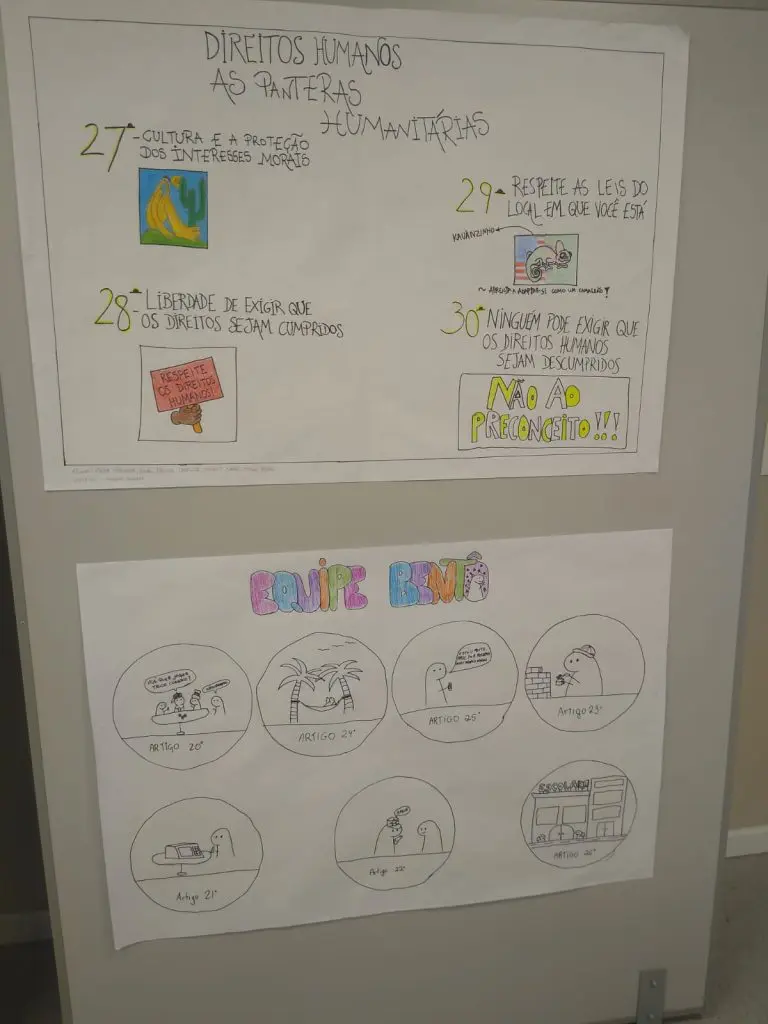 DIREITOS HUMANOS
AS PANTERAS
HUMANITÁRIAS
27ª - CULTURA E A PROTEÇÃO
DOS INTERESSES MORAIS
28ª - LIBERDADE DE EXIGIR QUE
OS DIREITOS SEJAM CUMPRIDOS
RESPEITE
OS DIREITOS
HUMANOS!
29ª RESPEITE AS LEIS DO
LOCAL EM QUE VOCÊ ESTÁ
KAUANZINHO
COMO UM
30ª NINGUÉM PODE EXIGIR QUE
OS DIREITOS HUMANOS
SEJAM DESCUMPRIDOS
NÃO AO
PRECONCEITO!!!
EQUIPE BENTÔ
ARTIGO 20°
ARTIGO 24°
ARTIGO 25°
Artigo 23°
Artigo 21°
Artigo 22°
ESCOLA
ARTIGO 26°